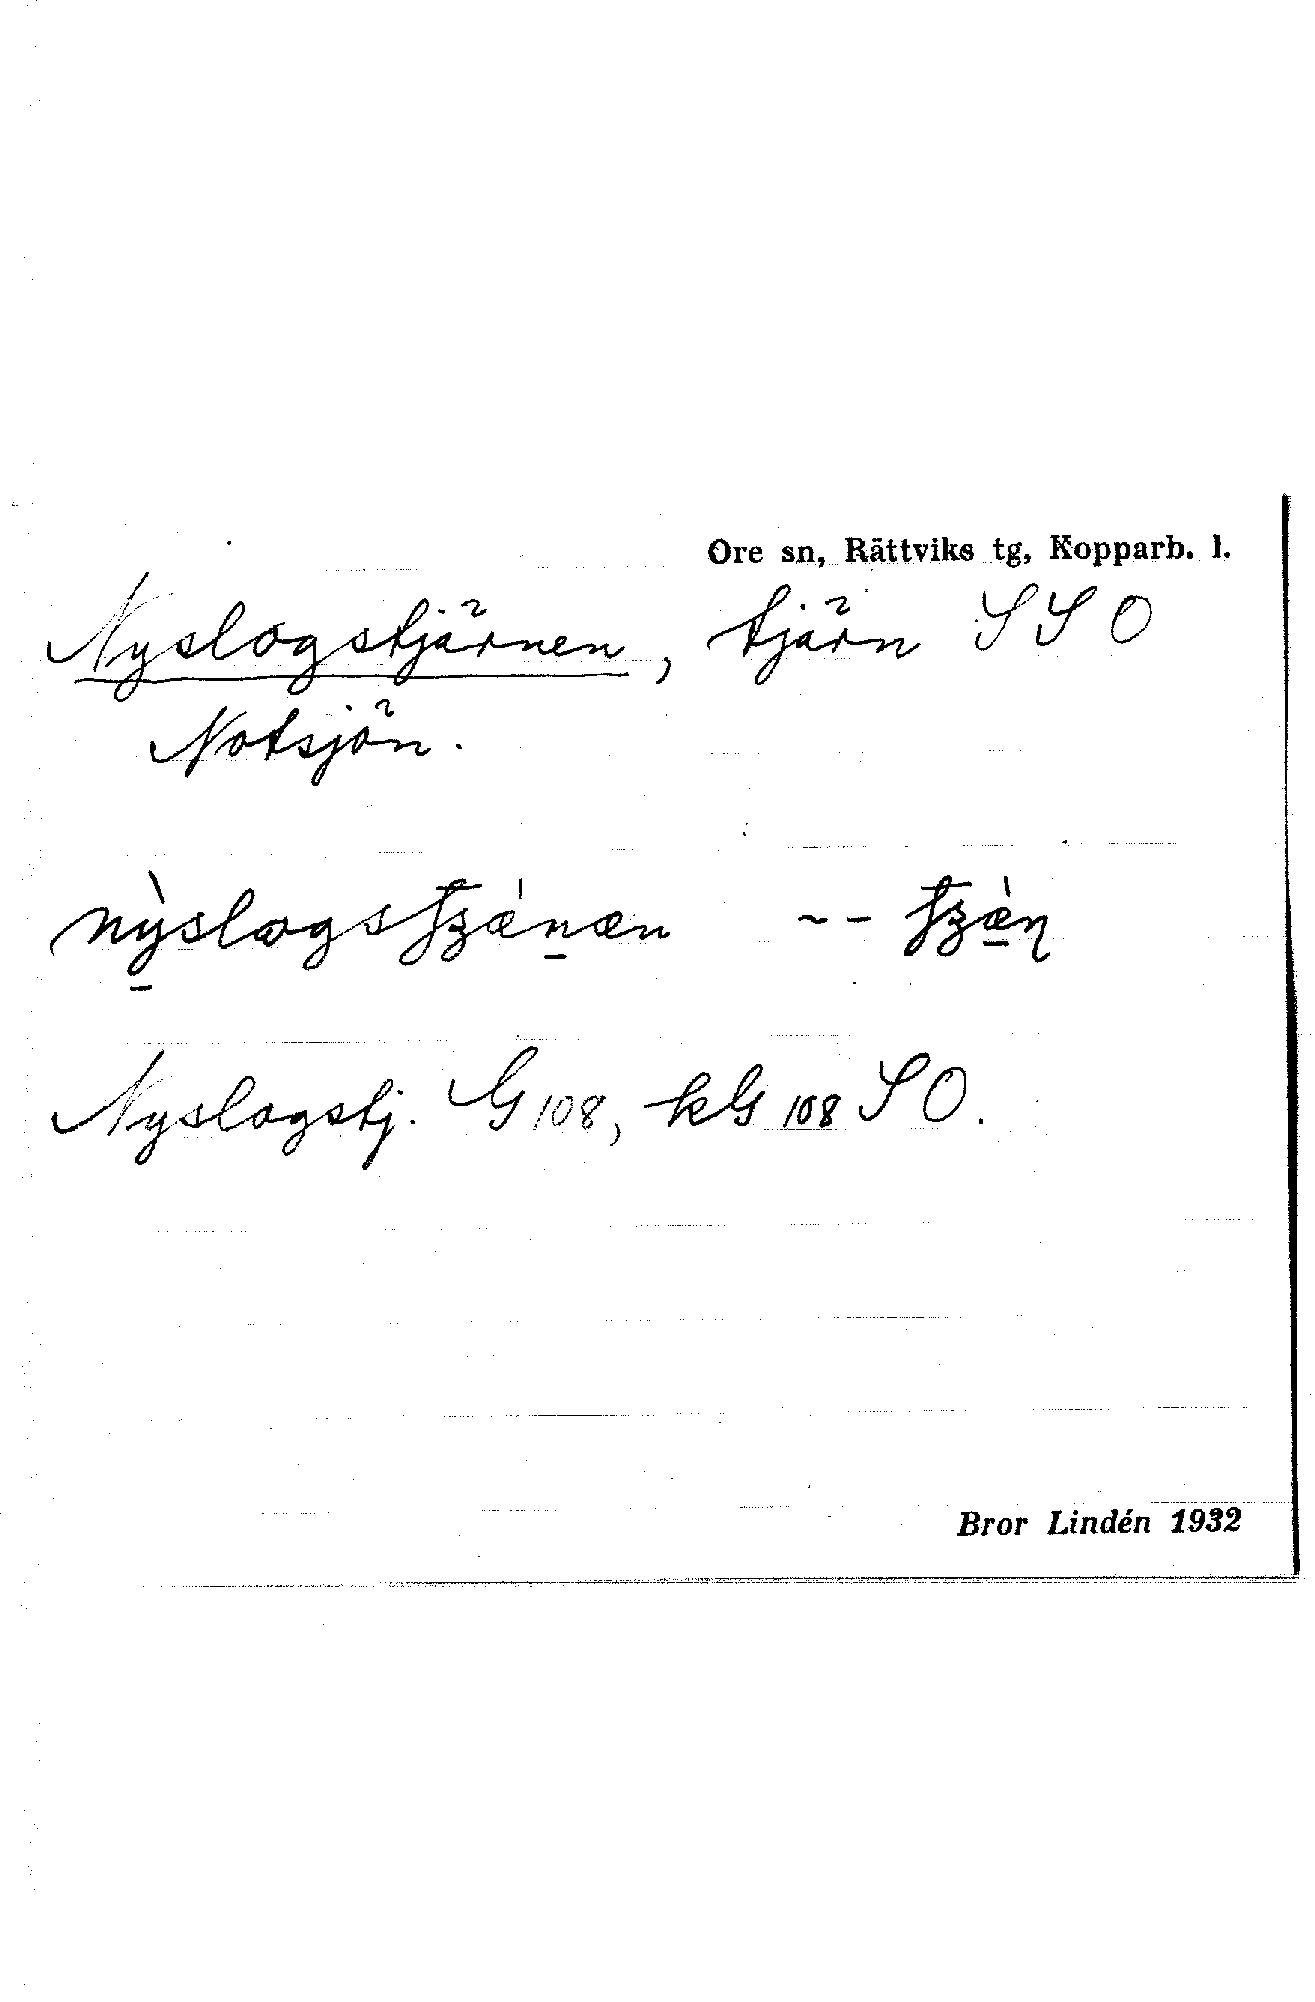 Ore sn, Rättviks tg, Kopparb. l.
Nyslogstjärnen, tjärn SSO
Notsjön.
Nyslogstj. G 108, kG 108 SO.
Bror Lindén 1932